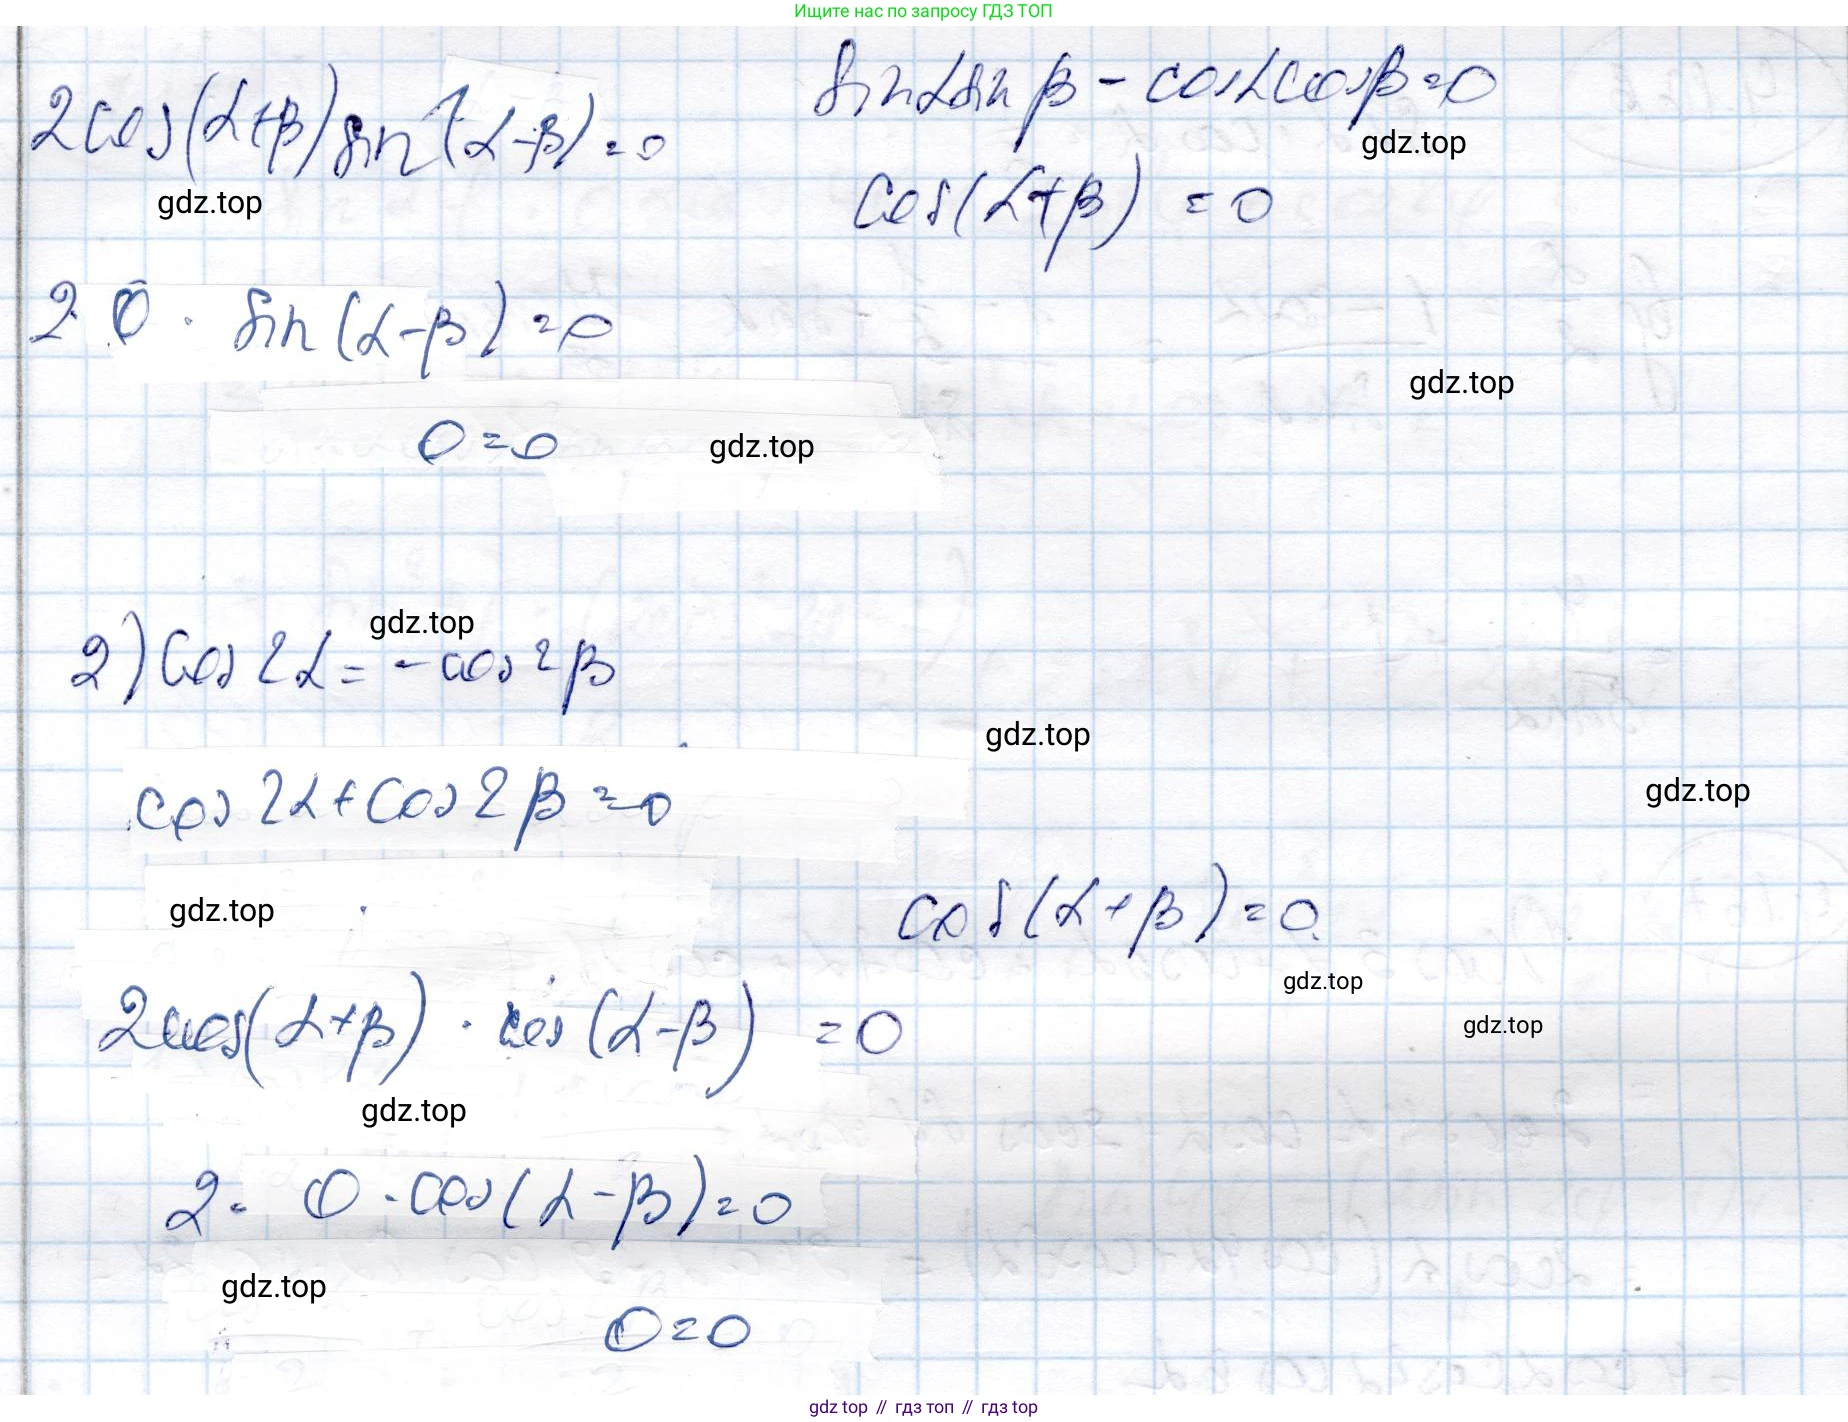 Ищите нас по запросу ГДЗ ТОП
2cos(α+β)sin(α-β)=0
sinαsinβ-cosαcosβ=0
gdz.top
gdz.top
cos(α+β) =0
2·0·sin(α-β)=0
gdz.top
0=0
gdz.top
gdz.top
2) cos2α=-cos2β
gdz.top
cos2α+cos2β=0
gdz.top
gdz.top
cos(α+β)=0
gdz.top
2cos(α+β)·cos(α-β) =0
gdz.top
gdz.top
2·0·cos(α-β)=0
gdz.top
0=0
gdz top // гдз топ // гдз top